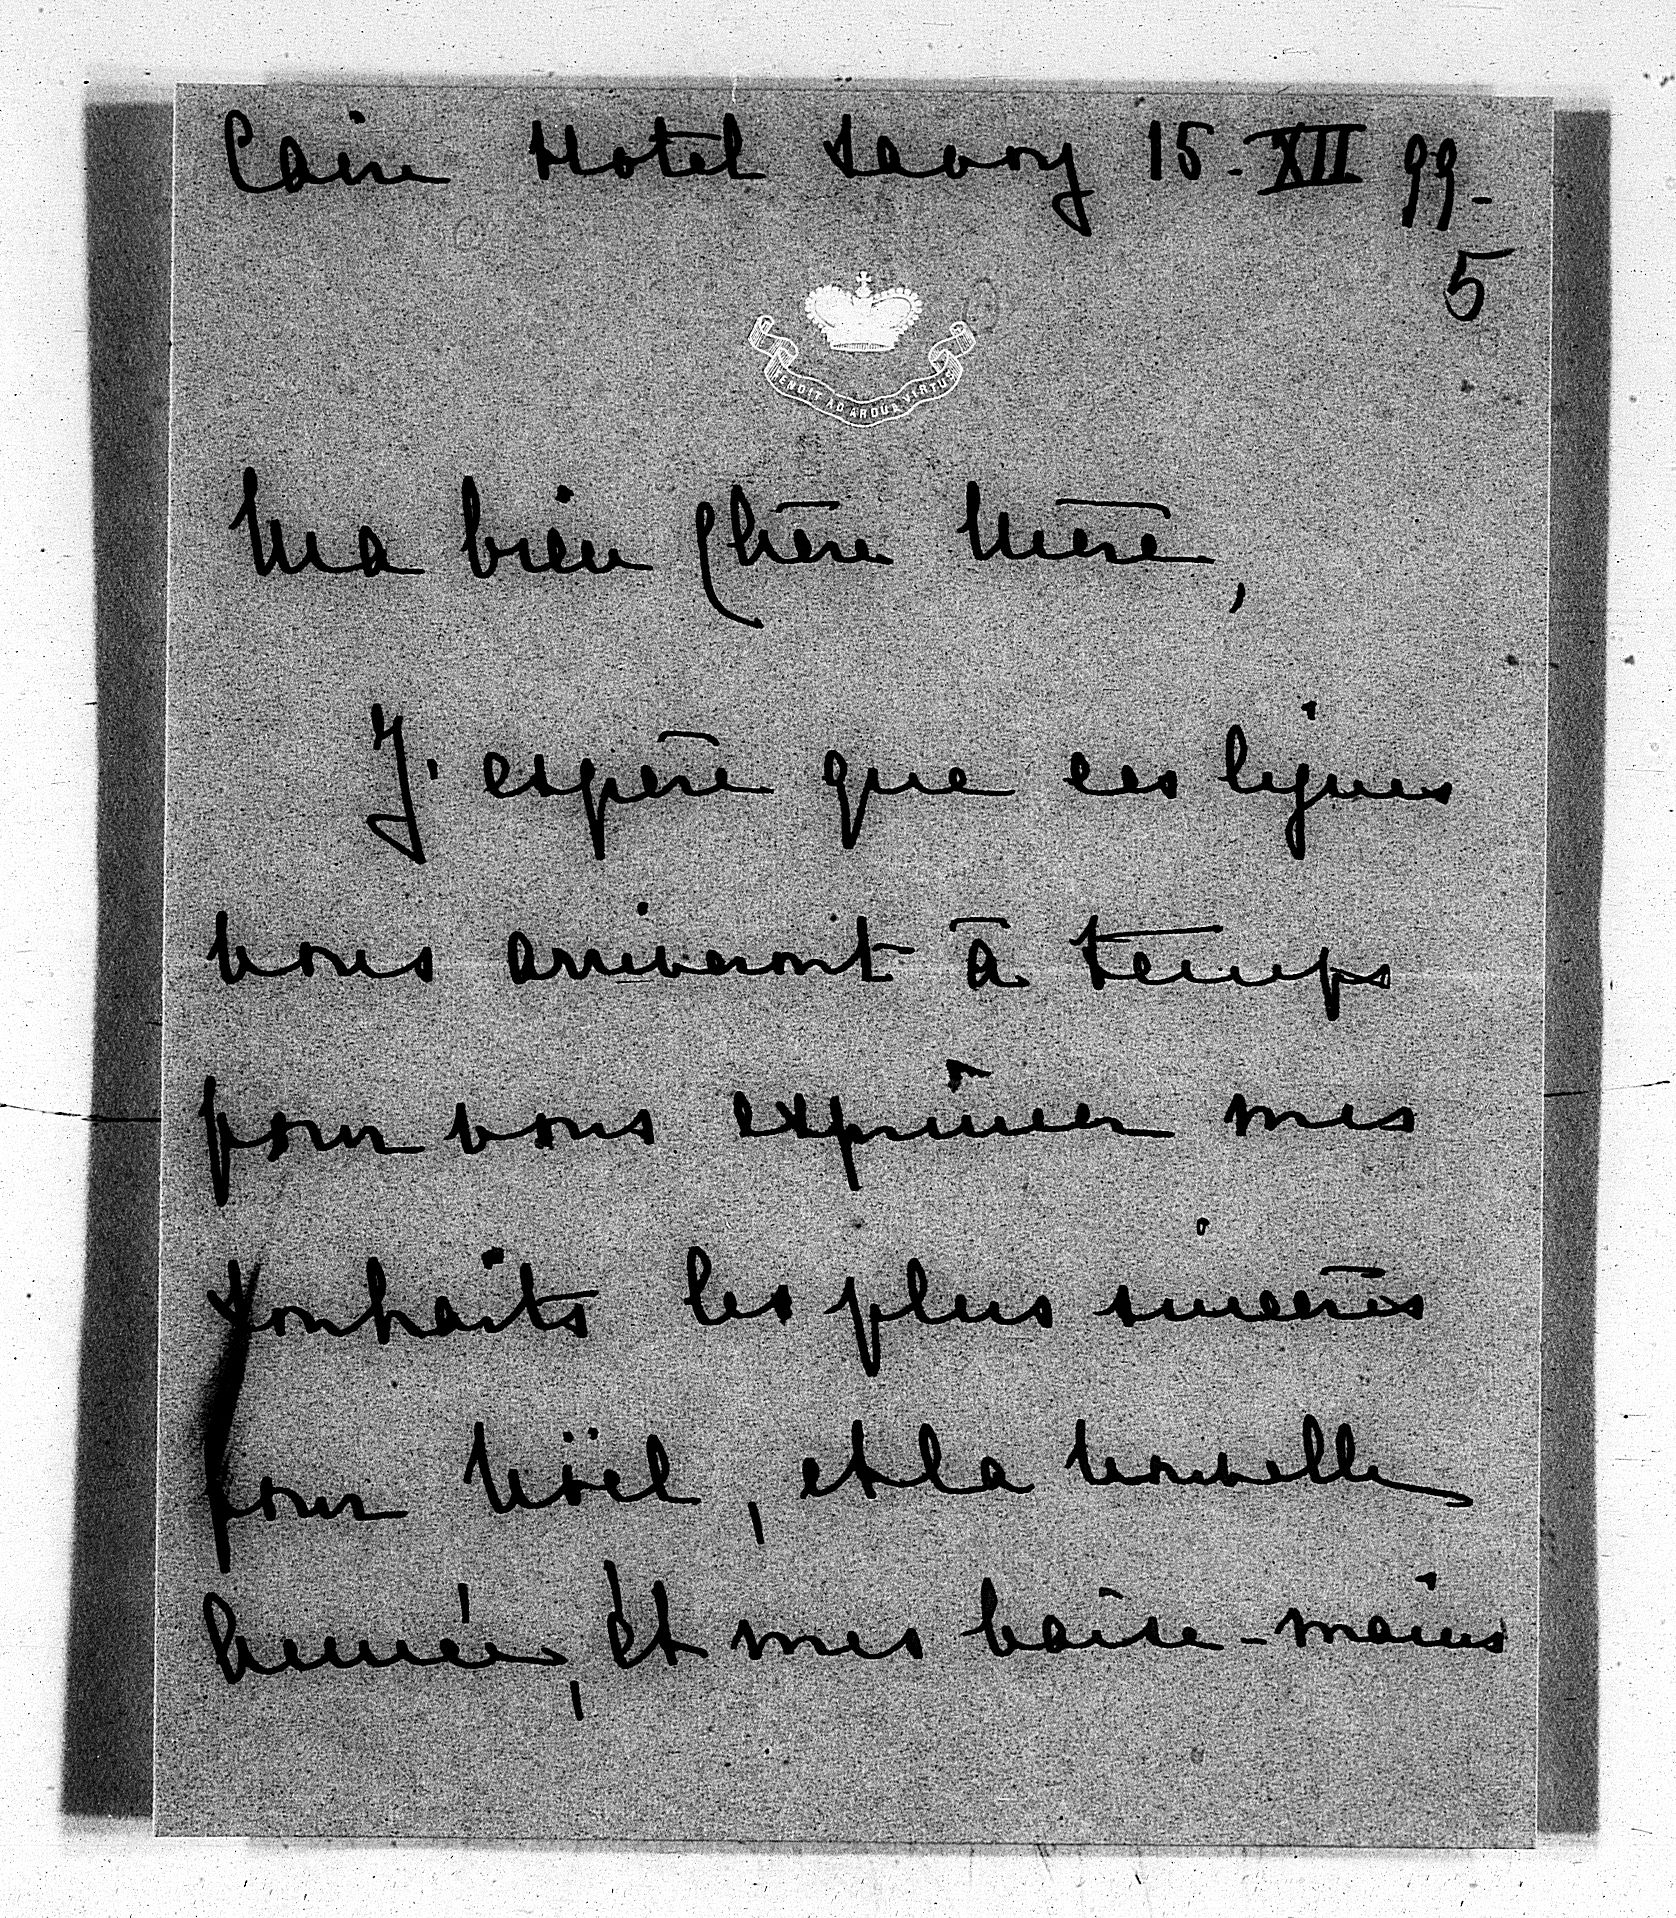 Caire Hotel Savoy 15-XII 99-
5
TENDIT AD ARDUA VIRTUS
Ma bien Chère Mère,
J'espère que ces lignes
vous arriveront à temps
pour vous exprimer mes
souhaits les plus sincères
pour Nöel, et la Nouvelle
Année, et mes baise-mains